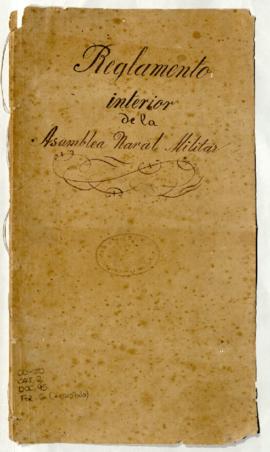 Reglamento
interior
de la
Asamblea Naval Militar
CAT. 2
DOC. 95